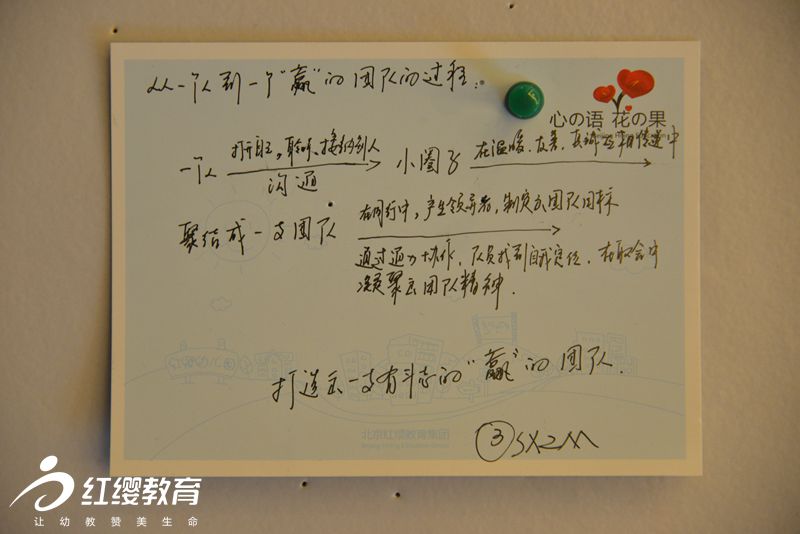 从一个人到一个“赢”的团队的过程.
心の语 花の果
一个人 打开自己，聆听、接纳别人 小圈子 在温暖、友善、真诚的传递中
沟通
聚结成一支团队 在同行中，产生领导者，制定出团队目标
通过通力协作，队员找到自我定位，在取舍中
凝聚出团队精神.
打造出一支有斗志的“赢”的团队.
北京红缨教育集团
③
红缨教育
让幼教赞美生命